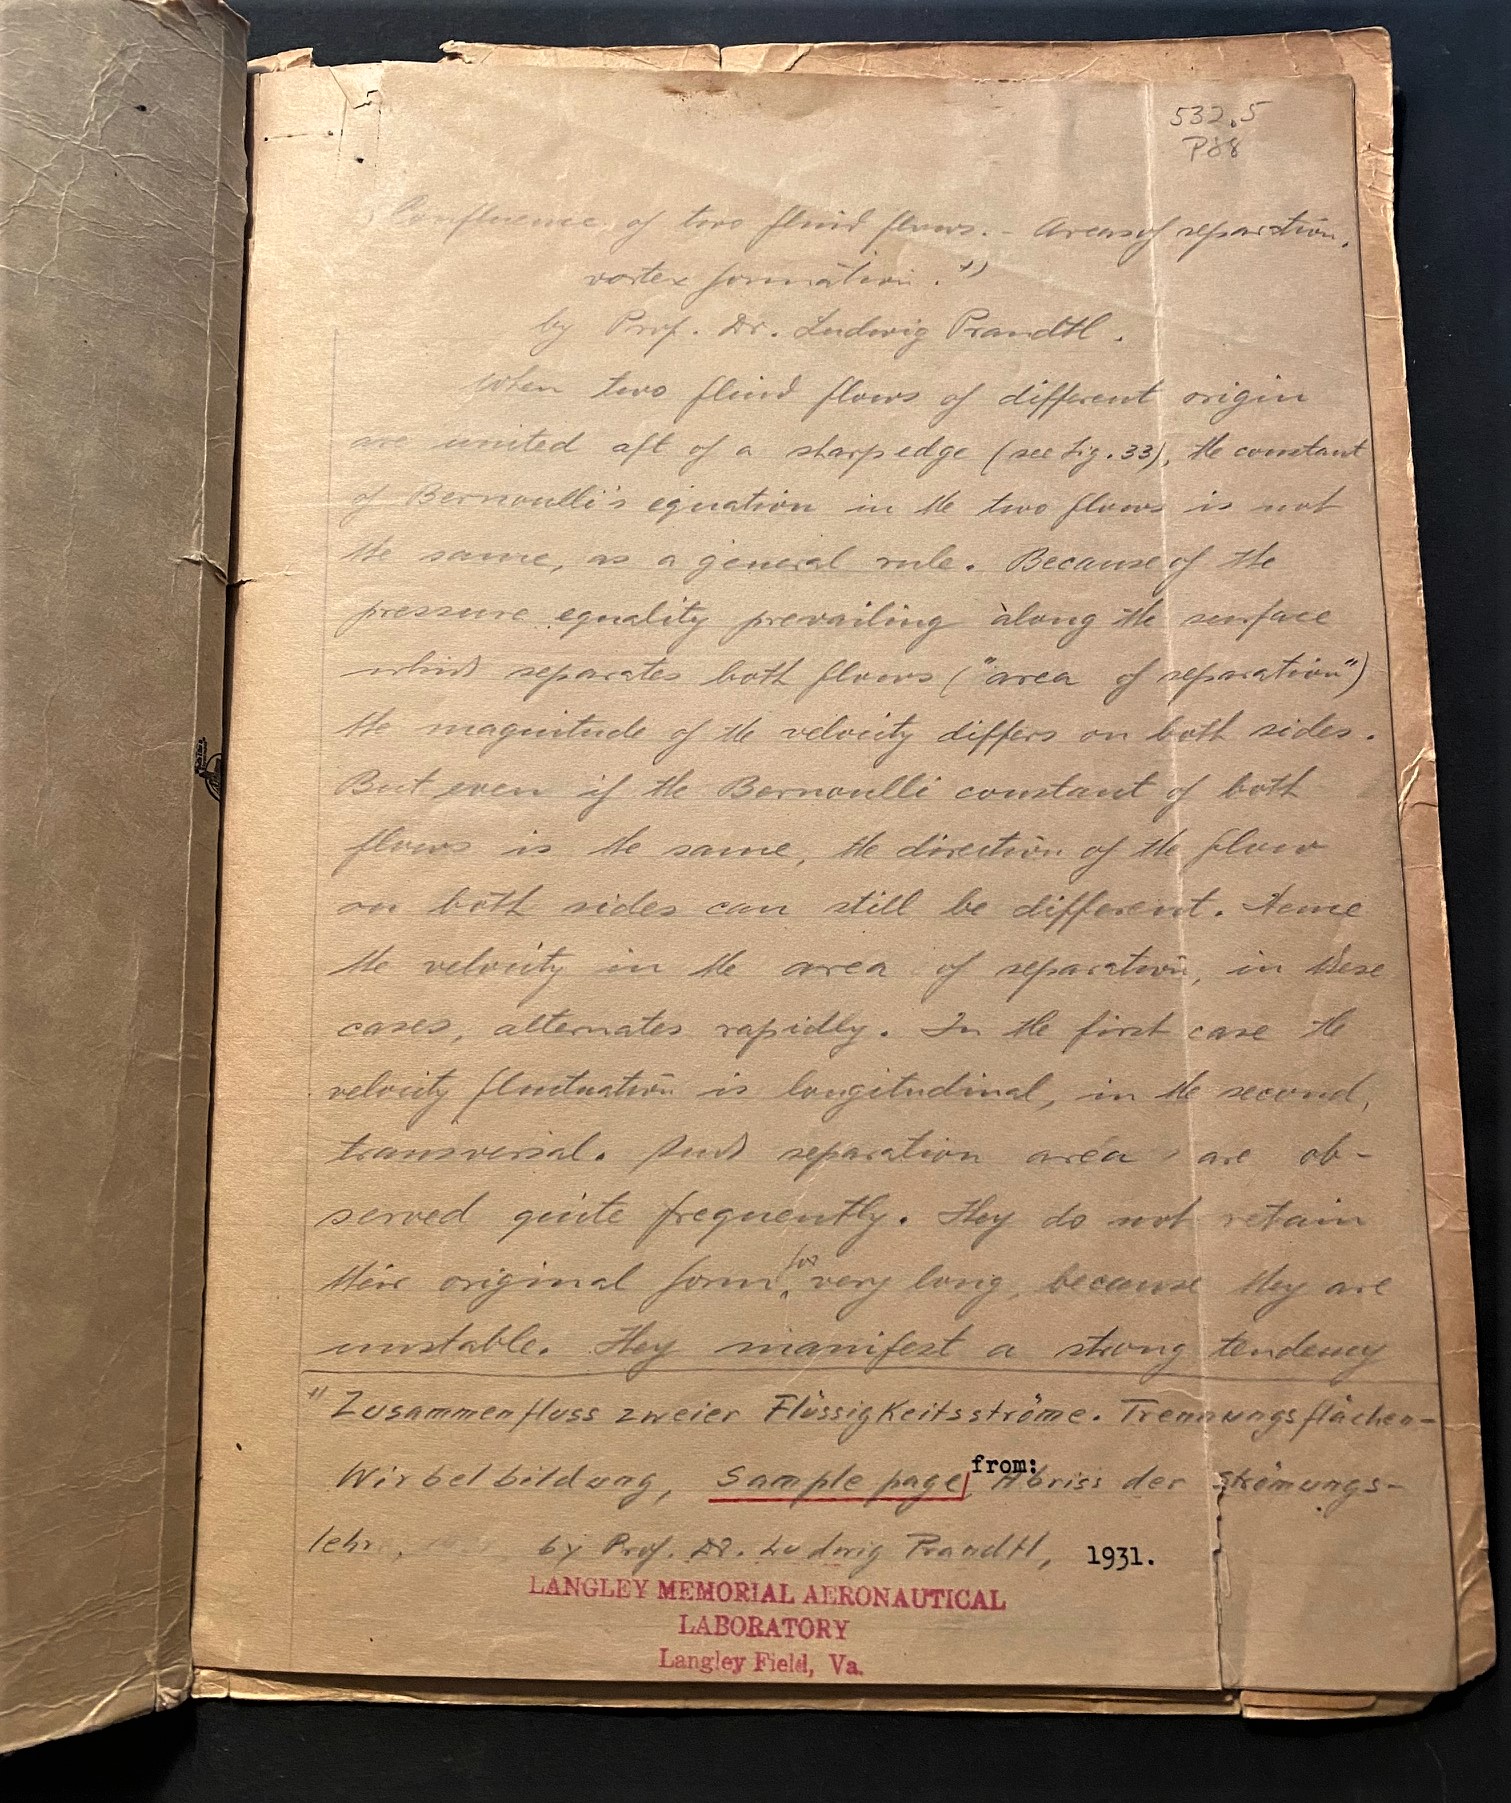 532.5
P88
Confluence of two fluid flows. - Areas of separation,
vortex formation. 1)
by Prof. Dr. Ludwig Prandtl.
When two fluid flows of different origin
are united aft of a sharp edge (see fig. 33), the constant
of Bernoulli's equation in the two flows is not
the same, as a general rule. Because of the
pressure equality prevailing along the surface
which separates both flows ("area of separation")
the magnitude of the velocity differs on both sides.
But even if the Bernoulli constant of both
flows is the same, the direction of the flow
on both sides can still be different. Hence
the velocity in the area of separation, in these
cases, alternates rapidly. In the first case the
velocity fluctuation is longitudinal, in the second,
transversal. Such separation area are ob-
served quite frequently. They do not retain
their original form for very long, because they are
unstable. They manifest a strong tendency
1) Zusammenfluss zweier Flüssigkeitsströme. Trennungsflächen-
Wirbelbildung, Sample page from: Abriss der Strömungs-
lehre, by Prof. Dr. Ludwig Prandtl, 1931.
LANGLEY MEMORIAL AERONAUTICAL
LABORATORY
Langley Field, Va.